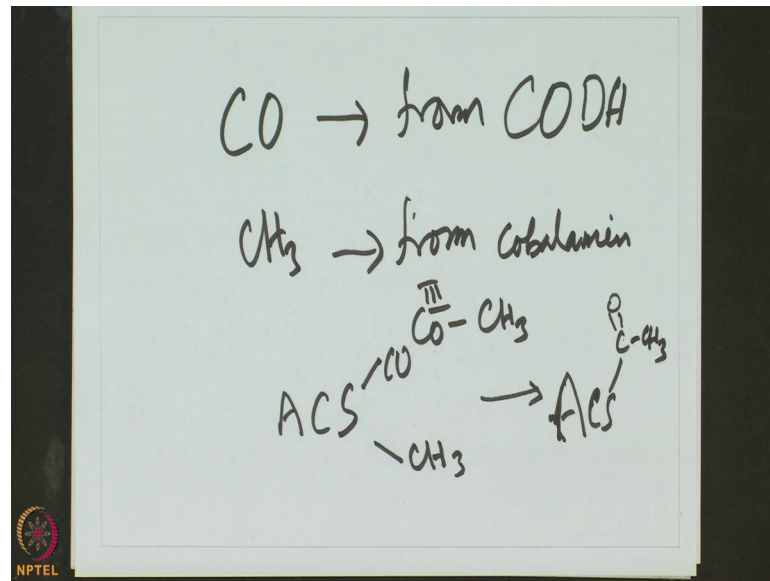 CO → from CODH
CH₃ → from cobalamin
III
Co–CH₃
ACS CO CH₃ → ACS C=O CH₃
NPTEL